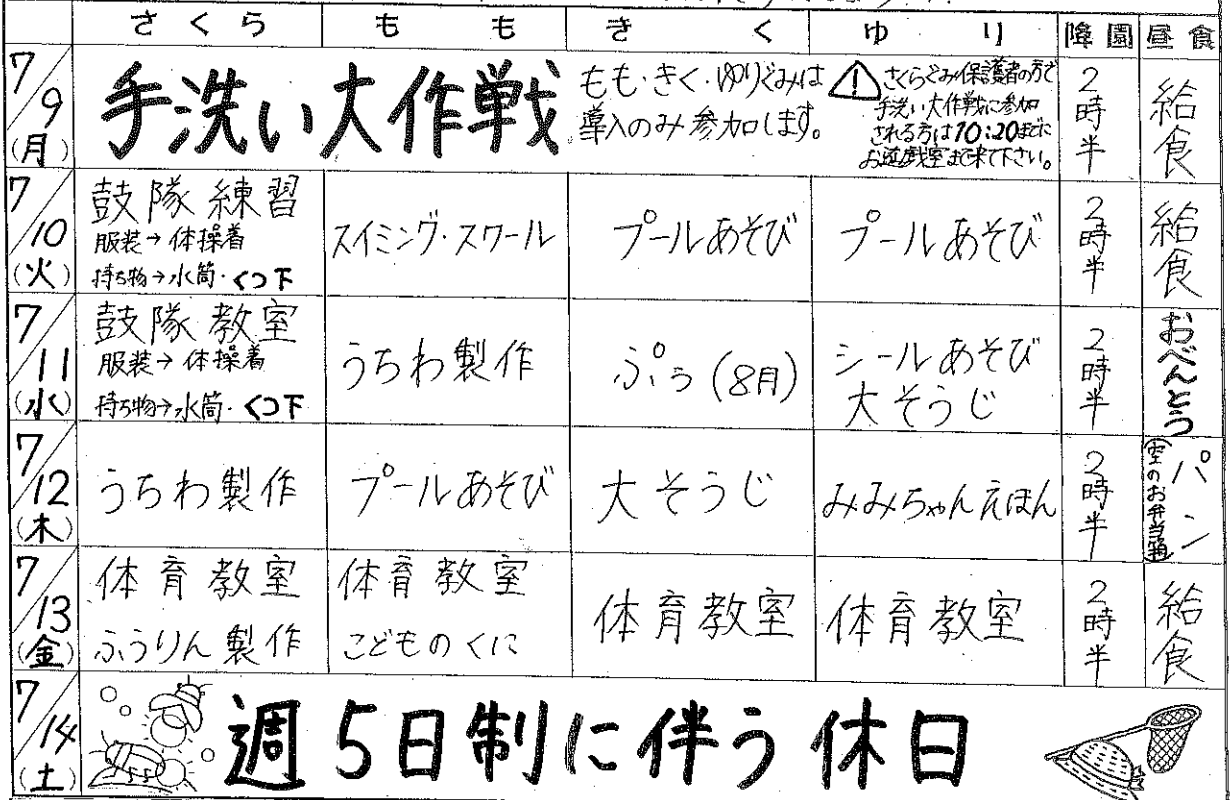 さくら もも きく ゆり 降園 昼食
7/9(月) 手洗い大作戦 もも・きく・ゆりぐみは
導入のみ参加します。
さくらぐみ保護者の方で
手洗い大作戦に参加
される方は10:20までに
お遊戯室まで来て下さい。
2時半 給食
7/10(火) 鼓隊練習
服装→体操着
持ち物→水筒・くつ下
スイミング・スクール プールあそび プールあそび 2時半 給食
7/11(水) 鼓隊教室
服装→体操着
持ち物→水筒・くつ下
うちわ製作 ぷぅ(8月) シールあそび
大そうじ
2時半 おべんとう
7/12(木) うちわ製作 プールあそび 大そうじ みみちゃんえほん 2時半 パン
(空のお弁当箱)
7/13(金) 体育教室
ふうりん製作
体育教室
こどものくに
体育教室 体育教室 2時半 給食
7/14(土) 週5日制に伴う休日